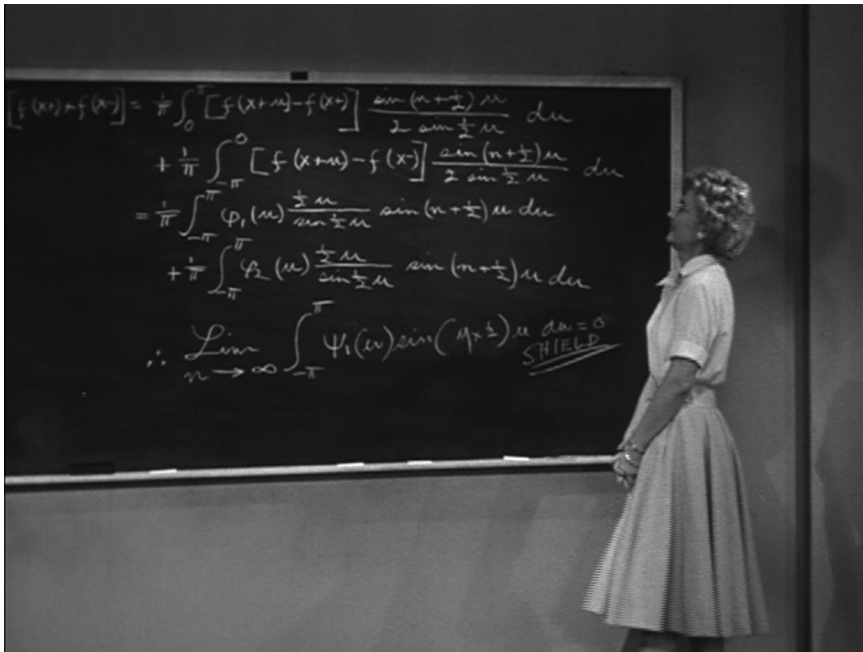 [f(x+)+f(x-)] = 1/π ∫₀^π [f(x+u)-f(x+)] sin(n+½)u / 2 sin ½u du
+ 1/π ∫_{-π}^0 [f(x+u)-f(x-)] sin(n+½)u / 2 sin ½u du
= 1/π ∫_{-π}^π φ₁(u) ½u / sin ½u sin(n+½)u du
+ 1/π ∫_{-π}^π φ₂(u) ½u / sin ½u sin(n+½)u du
∴ Lim n→∞ ∫_{-π}^π ψ₁(u) sin( ½)u du = 0
SHIELD